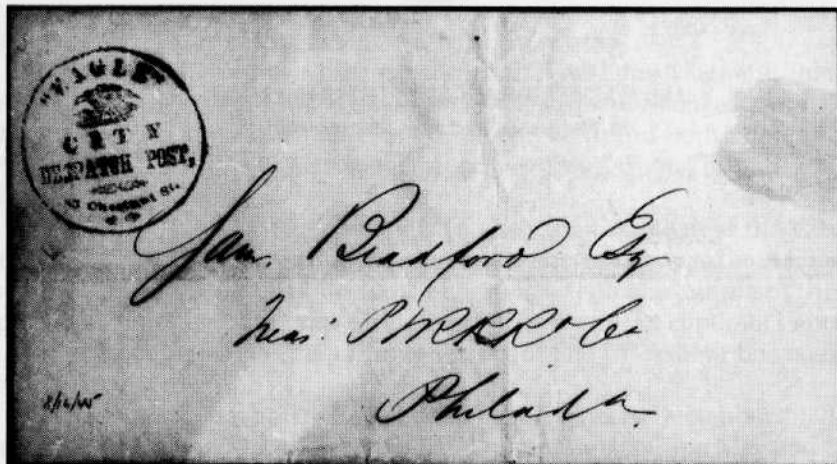 "EAGLE"
CITY
DESPATCH POST,
Chestnut St.
Sam. Bradford Esq
Treas: P & R R R Co
Philada